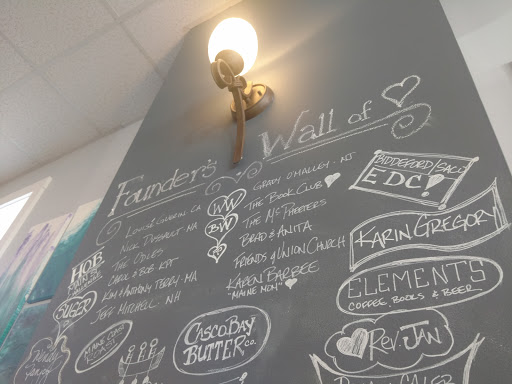 Founder's Wall of
Louise Grerin, CA
Nick Dussault · MA
The Odles
Carol & Bob KPT
Kim & Anthony Terry · MA
Jeff Mitchell · NH
WW
BW
Grady O'Malley · NJ
The Book Club
The McPheeters
Brad & Anita
Friends of Union Church
Karen Barbee
"Maine Mom"
Biddeford/Saco
EDC!
Karin Gregory
Elements
Coffee, Books & Beer
Rev. Jan
HOB
Sugar
Casco Bay
Butter Co.